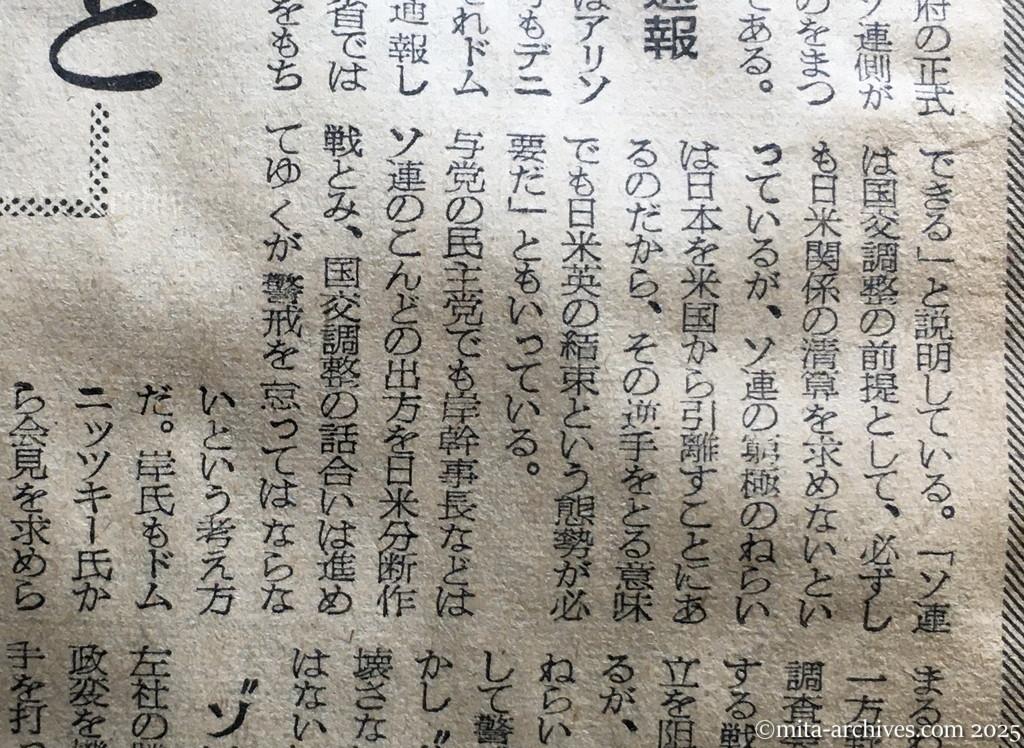 府の正式
ソ連側が
のをまつ
である。
通報
はアリソ
もデニ
れドム
通報し
省では
をもち
と
できる」と説明している。「ソ連
は国交調整の前提として、必ずし
も日米関係の清算を求めないとい
っているが、ソ連の窮極のねらい
は日本を米国から引離すことにあ
るのだから、その逆手をとる意味
でも日米英の結束という態勢が必
要だ」ともいっている。
与党の民主党でも岸幹事長などは
ソ連のこんどの出方を日米分断作
戦とみ、国交調整の話合いは進め
てゆくが警戒を怠ってはならな
いという考え方
だ。岸氏もドム
ニッツキー氏か
ら会見を求めら
まる
一方
調査
する戦
立を阻
るが、
ねらい
して警
かし〃
壊さな
はない
〃ソ
左社の
政変を
手を打
©mita-archives.com 2025